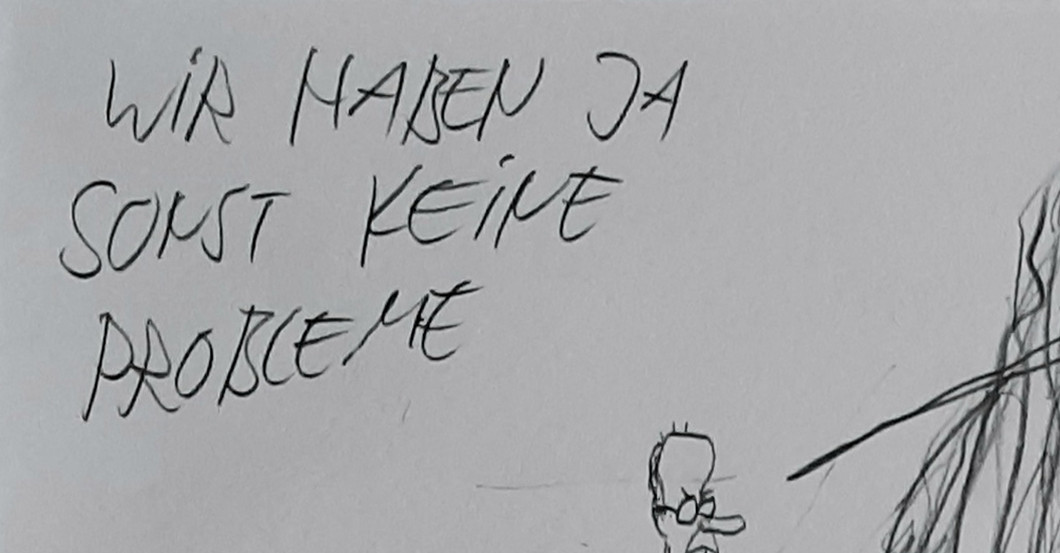 WiR HABEN JA
SONST KEiNE
PROBLEME